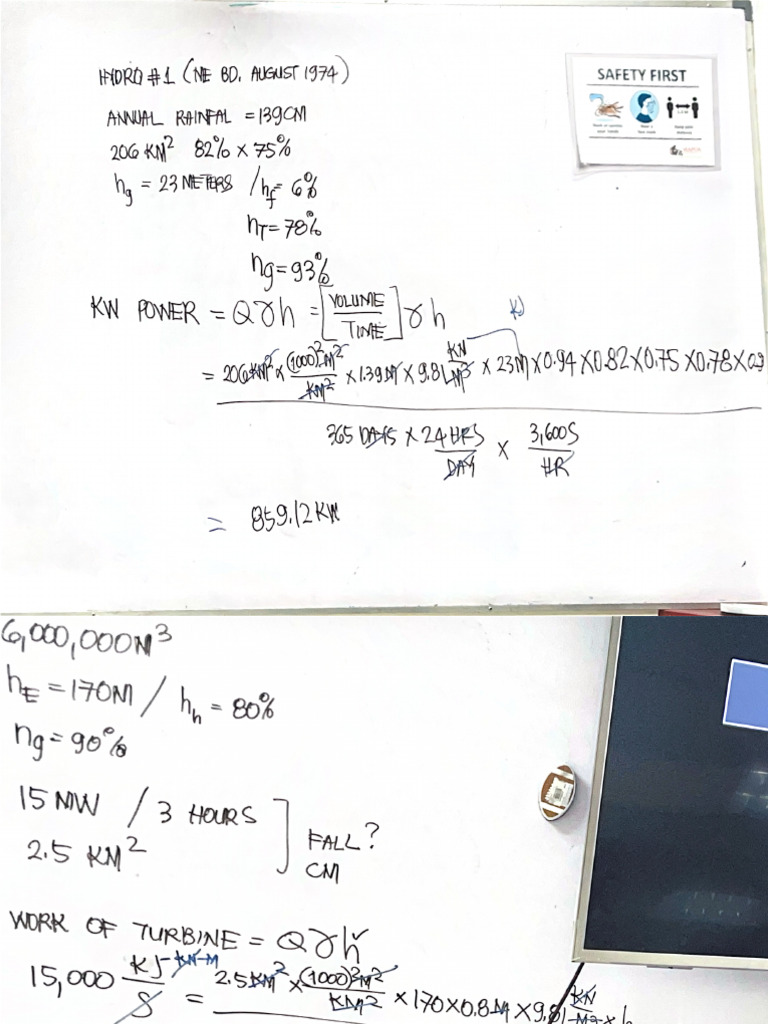 HYDRO #1 (ME BD. AUGUST 1974)
SAFETY FIRST
ANNUAL RAINFAL = 139CM
206 KM² 82% × 75%
hg = 23 METERS / hf = 6%
ηT = 78%
ηg = 93%
KW POWER = QɣH = [VOLUME / TIME] ɣ h
KJ
= 206 KM² × (1000)² M² / KM² × 1.39M × 9.81 KN / M³ × 23M × 0.94 × 0.82 × 0.75 × 0.78 × 0.9
365 DAYS × 24 HRS / DAY × 3,600S / HR
= 859.12 KW
6,000,000M³
hE = 170M / hh = 80%
ηg = 90%
15 MW / 3 HOURS
FALL?
2.5 KM²
CM
WORK OF TURBINE = Qɣh
15,000 KJ / S KN-M = 2.5 KM² × (1000)² M² / KM² × 170 × 0.8 M × 9.81 KN / M³ × h